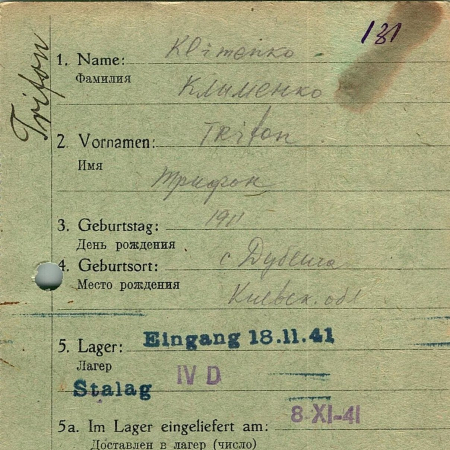 131
Trifon
1. Name: Klimenko
Фамилия Клименко
2. Vornamen: Trifon
Имя
Трифон
3. Geburtstag: 1911
День рождения
4. Geburtsort: с Дубешня
Место рождения Киевск. обл
5. Lager: Eingang 18.11.41
Лагер IV D
Stalag
5a. Im Lager eingeliefert am: 8-XI-41
Доставлен в лагер (число)